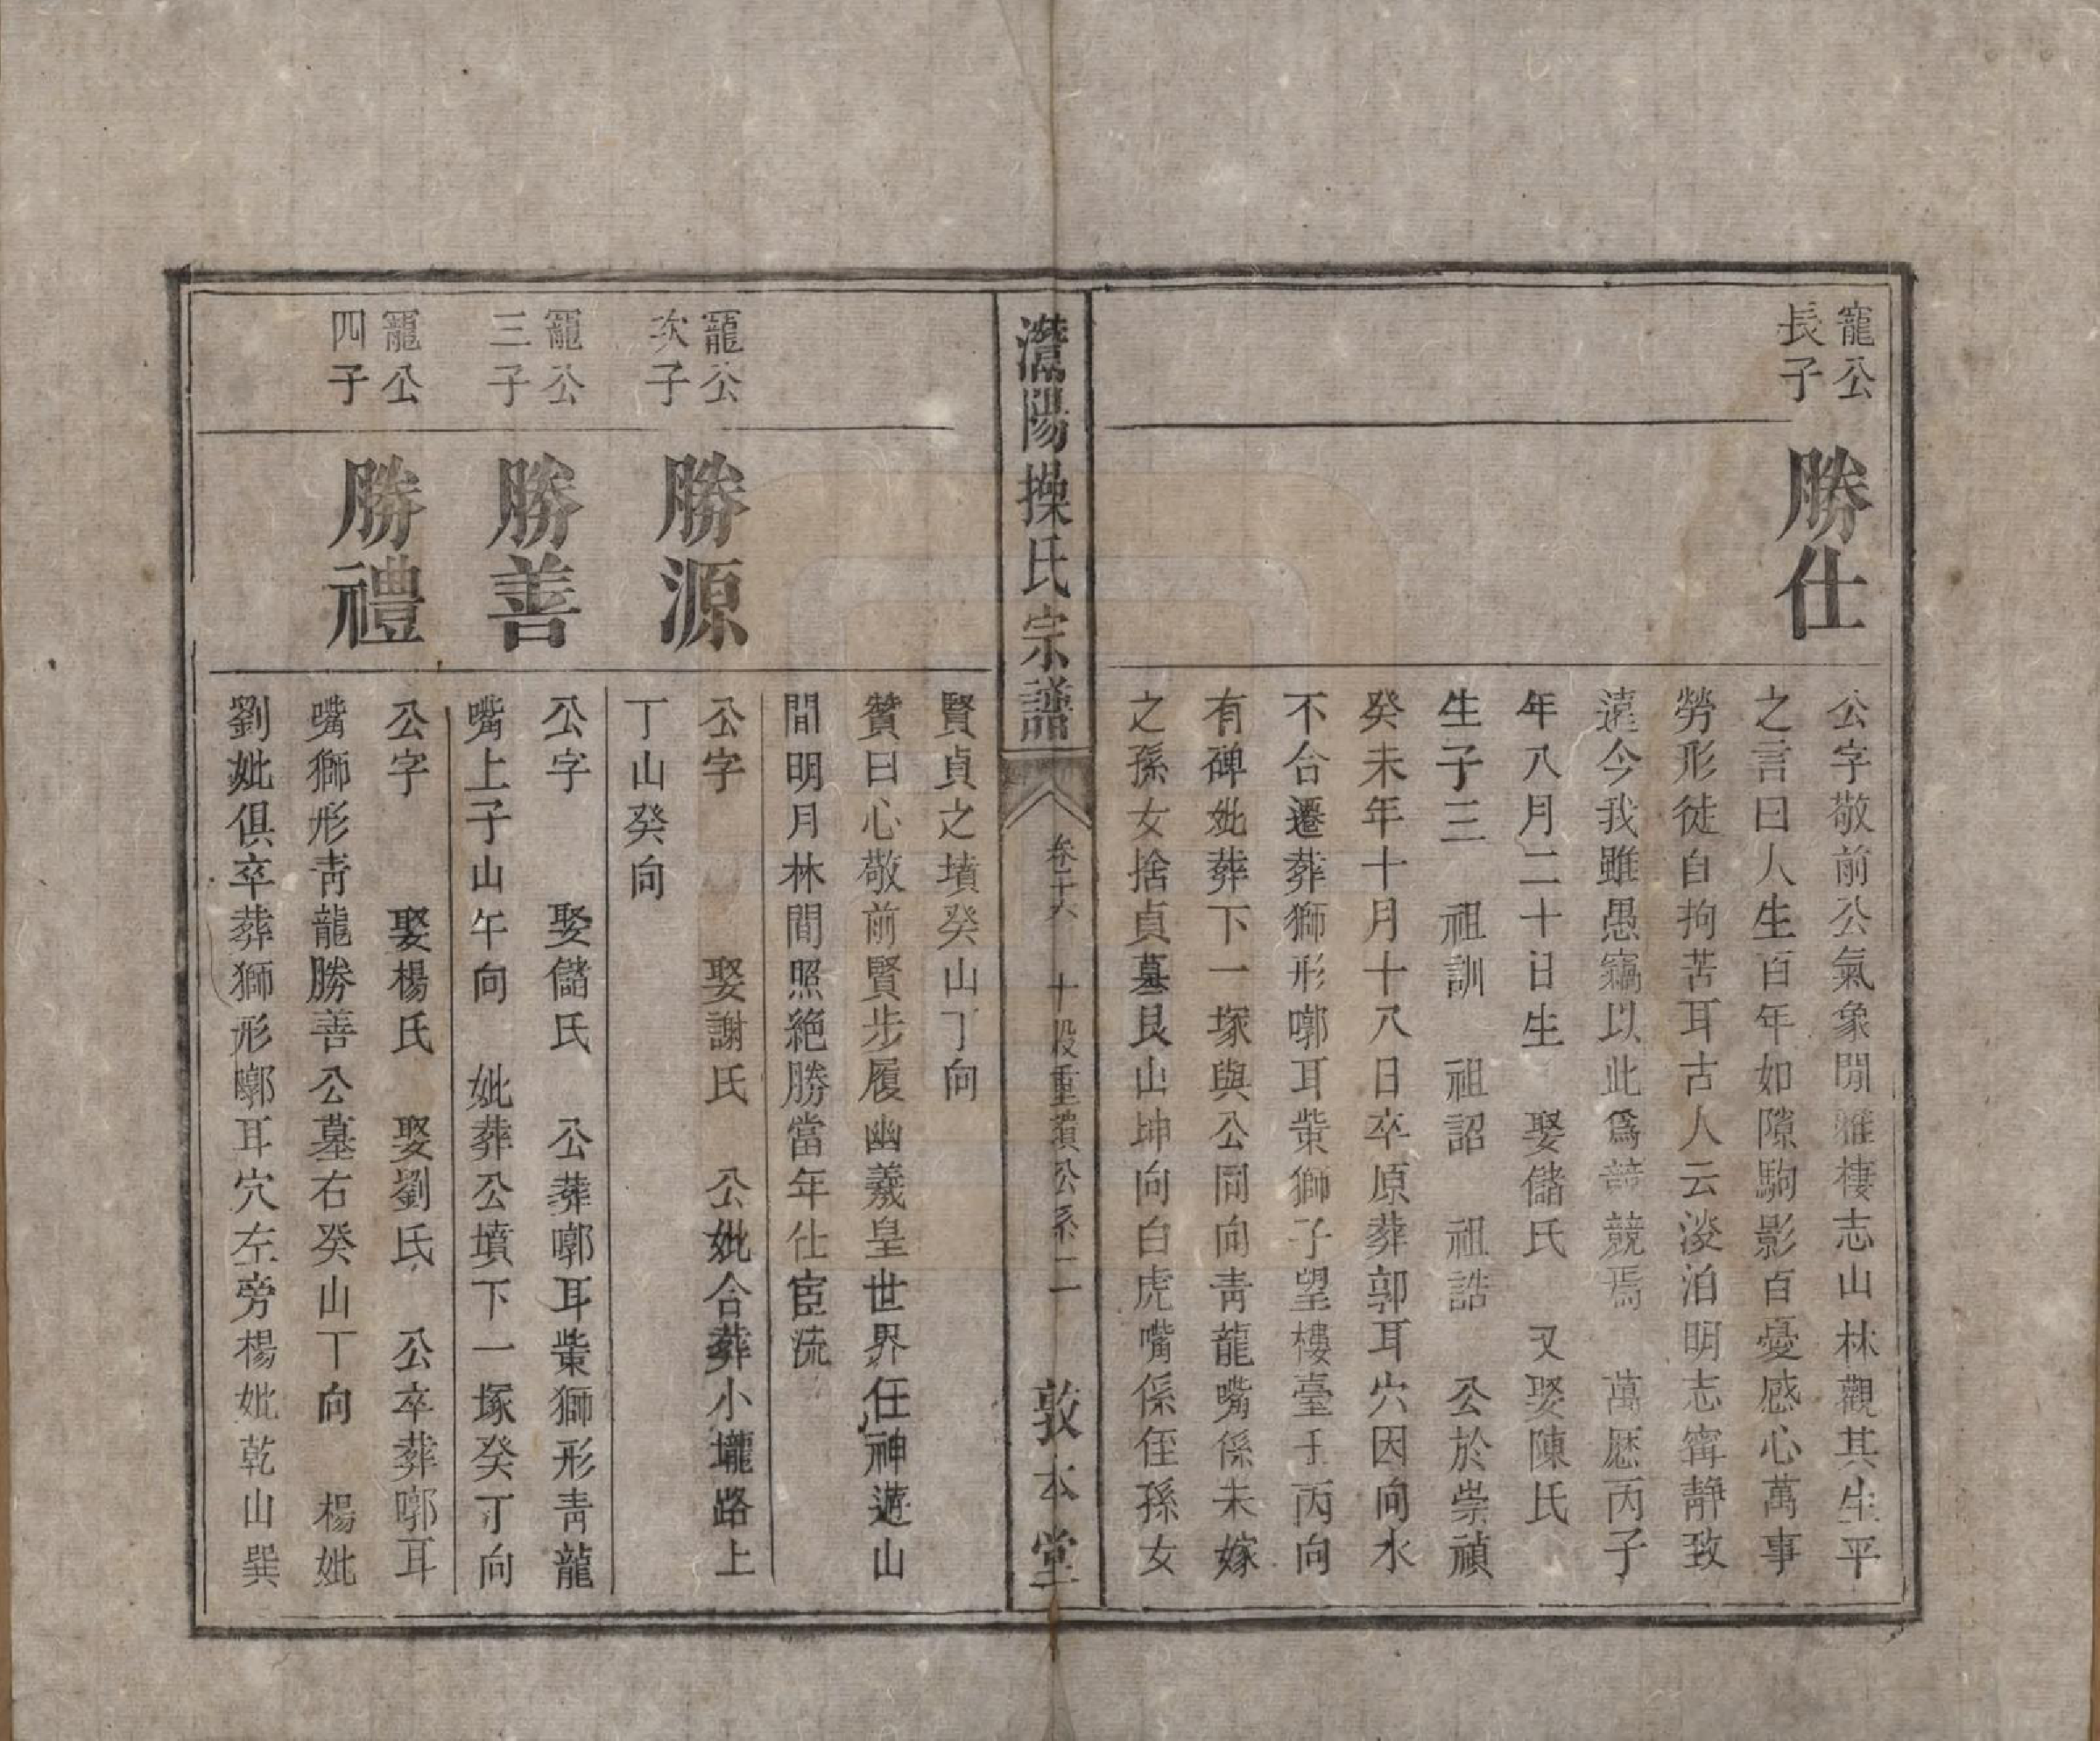 寵公
長子
勝仕
公字敬前公氣象閒雅棲志山林觀其生平
之言曰人生百年如隙駒影百憂感心萬事
勞形徒自拘苦耳古人云淡泊明志寗靜致
遠今我雖愚竊以此爲競焉 萬厯丙子
年八月二十日生 娶儲氏 又娶陳氏
生子三 祖訓 祖詔 祖誥 公於崇禎
癸未年十月十八日卒原葬郭耳穴因向水
不合遷葬獅形嘟耳柴獅子望樓臺壬丙向
有碑妣葬下一塚與公同向靑龍嘴係未嫁
之孫女捨貞墓艮山坤向白虎嘴係侄孫女
灊陽操氏宗譜
卷十六 十股重瓚公系 二
敦本堂
賢貞之墳癸山丁向
贊曰心敬前賢步履幽羲皇世界任神遊山
間明月林間照絕勝當年仕宦流
寵公
次子
勝源
公字 娶謝氏 公妣合葬小壠路上
丁山癸向
寵公
三子
勝善
公字 娶儲氏 公葬嘟耳柴獅形靑龍
嘴上子山午向 妣葬公墳下一塚癸丁向
寵公
四子
勝禮
公字 娶楊氏 娶劉氏 公卒葬嘟耳
嘴獅形靑龍勝善公墓右癸山丁向 楊妣
劉妣俱卒葬獅形嘟耳穴左旁楊妣乾山巽